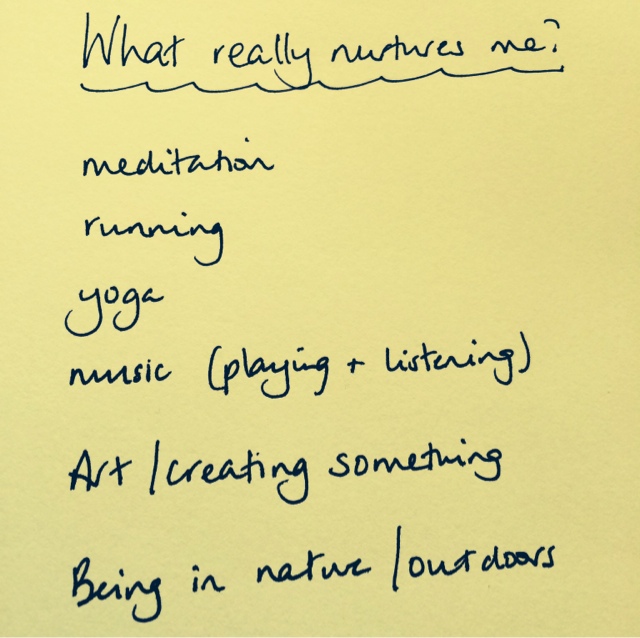 What really nurtures me?
meditation
running
yoga
music (playing + listening)
Art / creating something
Being in nature / outdoors